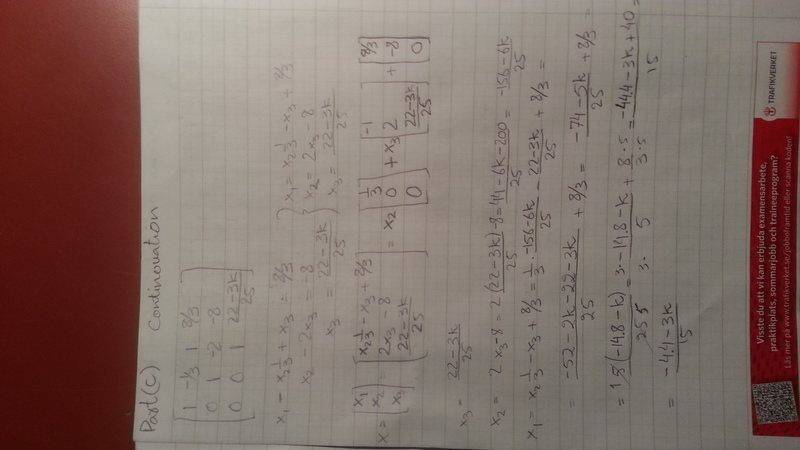 Part(c) Continovation
[1 -1/3 1 8/3
0 1 -2 -8
0 0 1 22-3k/25]
x1 - x2 1/3 + x3 = 8/3 } x1 = x2 1/3 - x3 + 8/3
x2 - 2x3 = -8 } x2 = 2x3 - 8
x3 = 22-3k/25 } x3 = 22-3k/25
x = [x1 x2 x3] = [x2 1/3 - x3 + 8/3, 2x3 - 8, 22-3k/25] = x2 [1/3 0 0] + x3 [-1 2 22-3k/25] + [8/3 -8 0]
x3 = 22-3k/25
x2 = 2x3 - 8 = 2(22-3k)/25 - 8 = 44-6k-200/25 = -156-6k/25
x1 = x2 1/3 - x3 + 8/3 = 1/3 · -156-6k/25 - 22-3k/25 + 8/3 =
= -52-2k-22-3k/25 + 8/3 = -74-5k/25 + 8/3 =
= 1 5(-14.8-k)/25 5 = 3·-14.8-k/3· 5 + 8·5/3·5 = -44.4-3k+40/15 =
= -4.4-3k/15
Visste du att vi kan erbjuda examensarbete,
praktikplats, sommarjobb och traineeprogram?
Läs mer på www.trafikverket.se/jobboframtid eller scanna koden!
TRAFIKVERKET